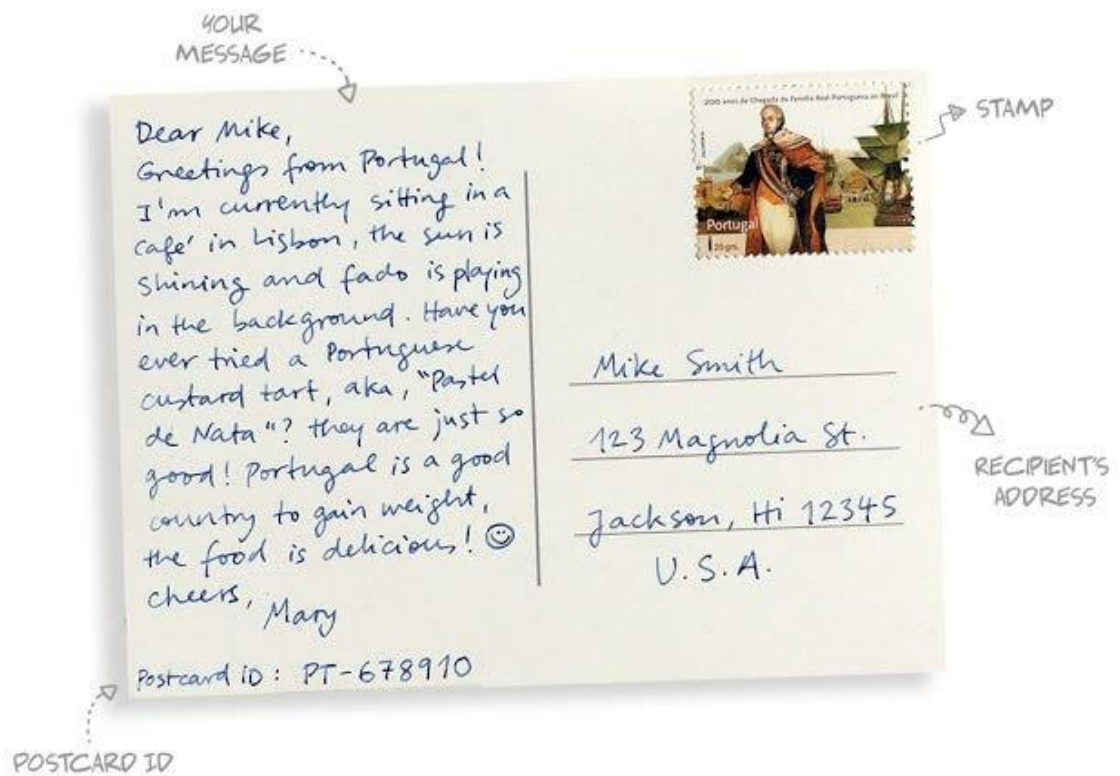 YOUR
MESSAGE
Dear Mike,
Greetings from Portugal!
I'm currently sitting in a
café in Lisbon, the sun is
shining and fado is playing
in the background. Have you
ever tried a Portuguese
custard tart, aka, "Pastel
de Nata"? they are just so
good! Portugal is a good
country to gain weight,
the food is delicious! ☺
cheers,
Mary
Postcard iD: PT-678910
POSTCARD ID
200 anos da Chegada da Família Real Portuguesa ao Brasil
Portugal
20 grs.
STAMP
Mike Smith
123 Magnolia St.
Jackson, Hi 12345
U.S.A.
RECIPIENT'S
ADDRESS